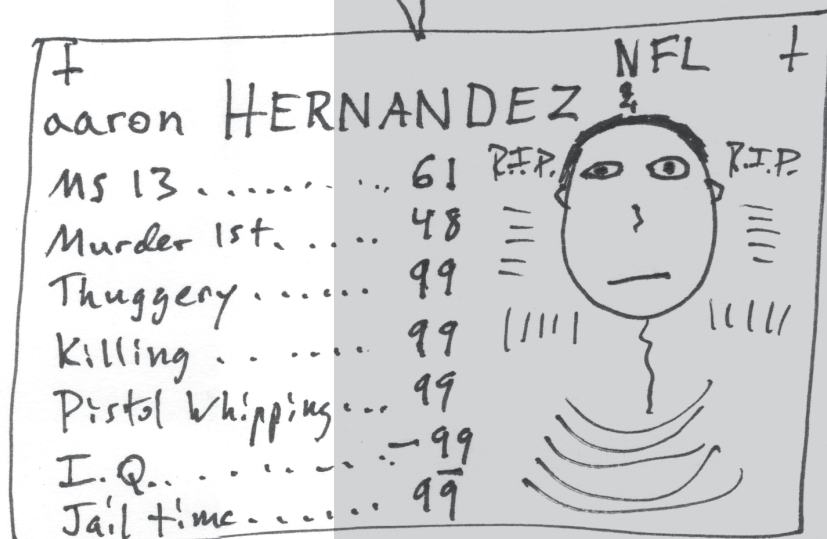 NFL
aaron HERNANDEZ
R.I.P. R.I.P.
MS 13 .......... 61
Murder 1st. .... 48
Thuggery ...... 99
Killing . ..... 99
Pistol Whipping... 99
I.Q.. ....... -99
Jail time...... 99